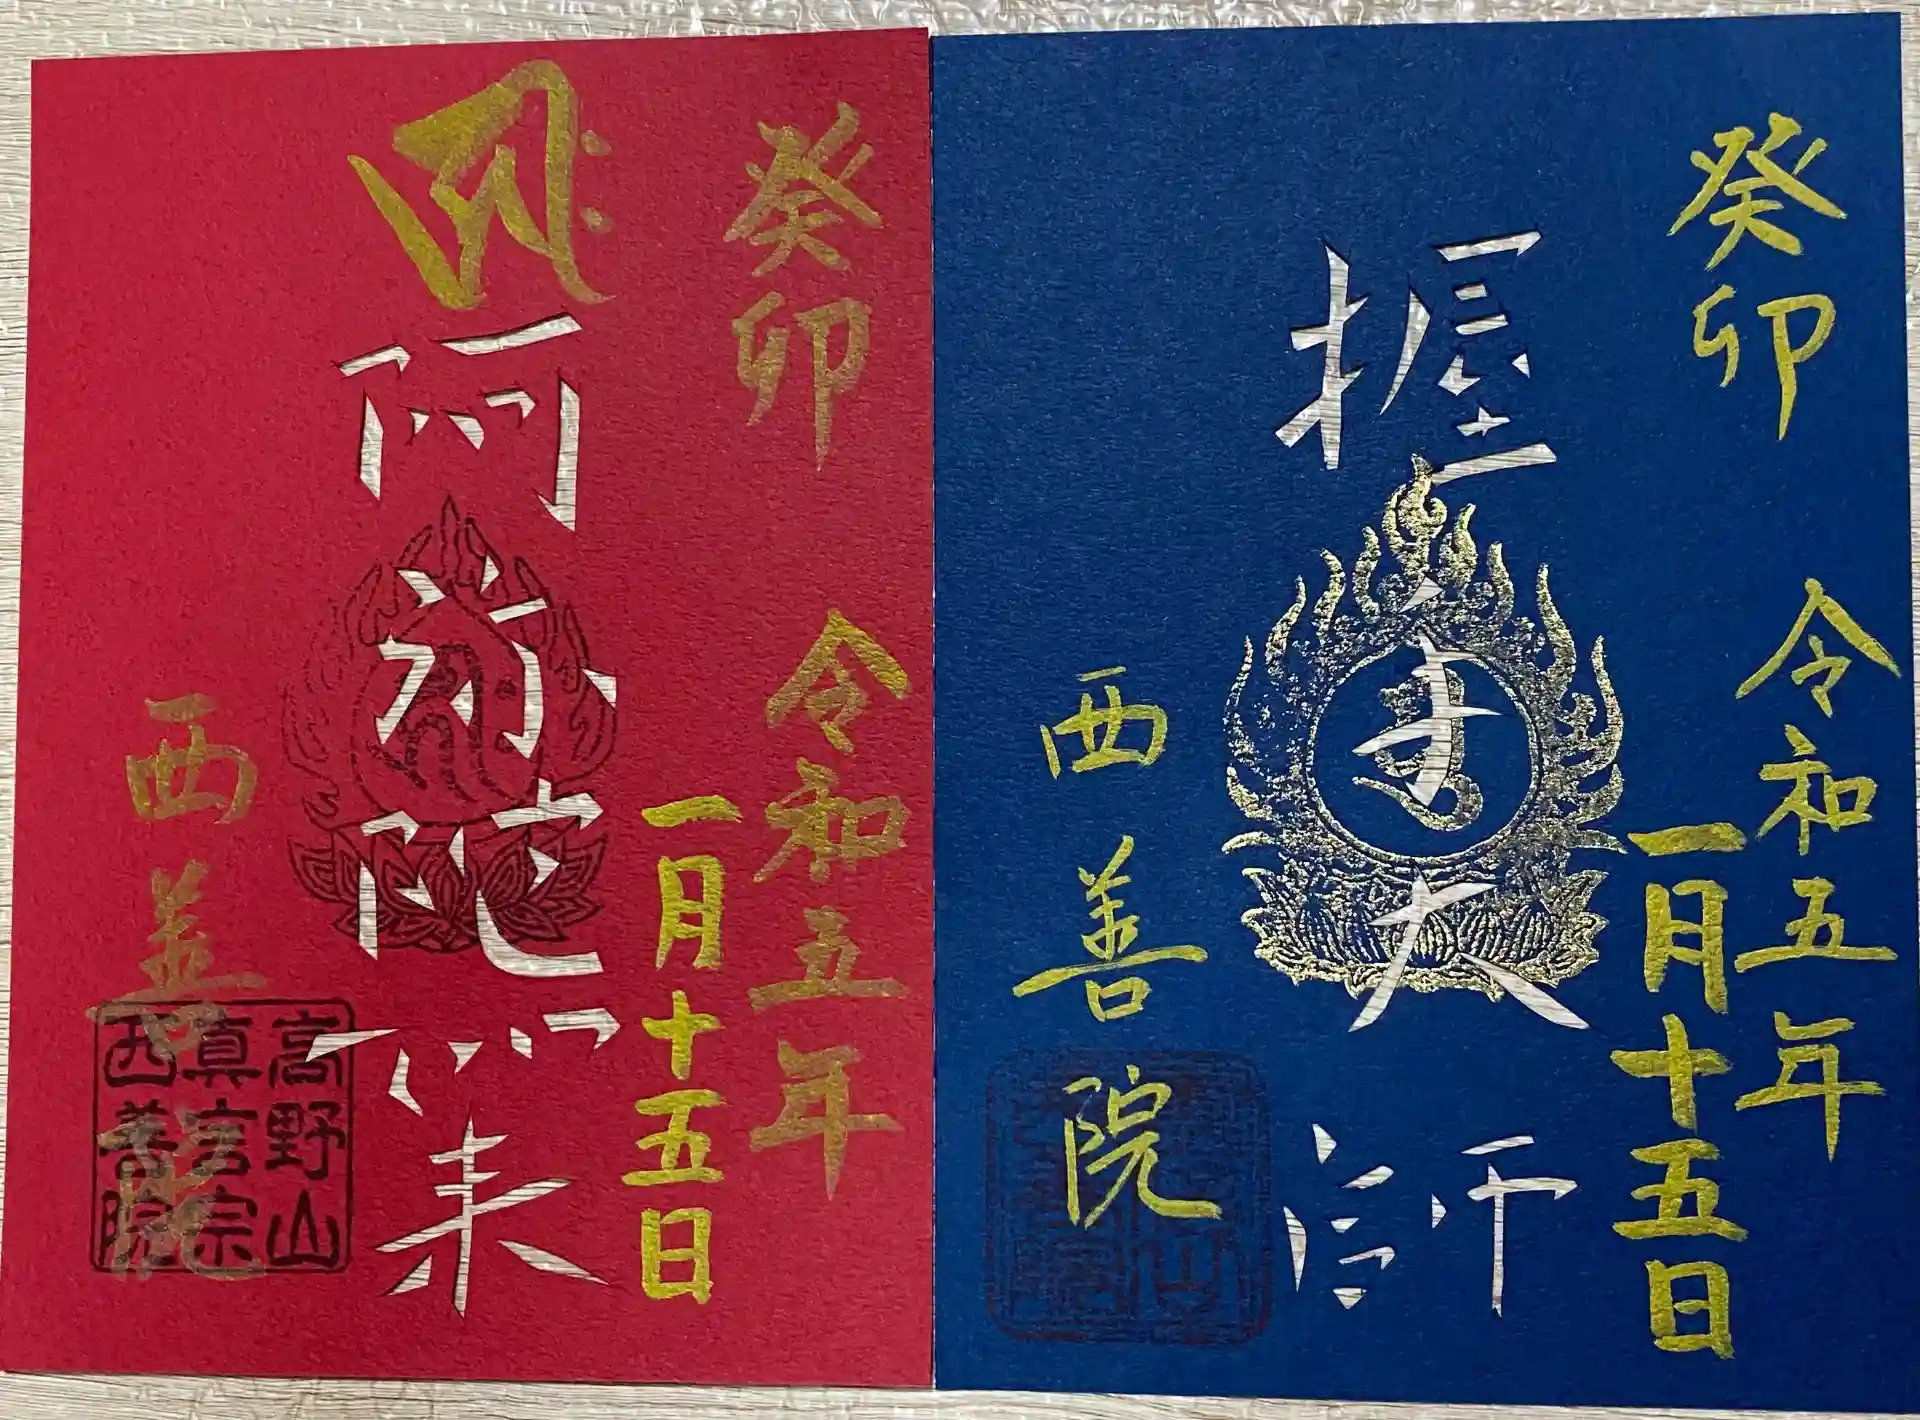 癸卯
令和五年
一月十五日
握手大師
西善院
癸卯
令和五年
一月十五日
阿弥陀如来
西善院
高野山
真言宗
西善院